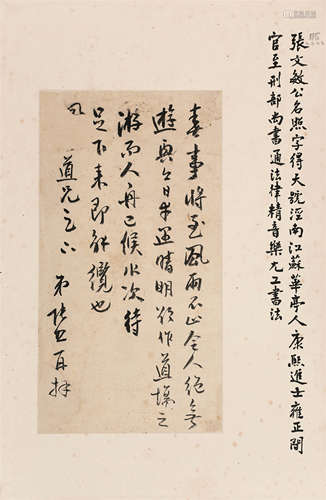 張文敏公名照字得天號涇南江蘇華亭人康熙進士雍正間
官至刑部尚書通法律精音樂尤工書法
春事將至風雨不止令人絕無
遊興今日幸逢晴明欲作道場之
游而人舟已候水次待
足下來即解纜也
道兄足下
弟張照再拜